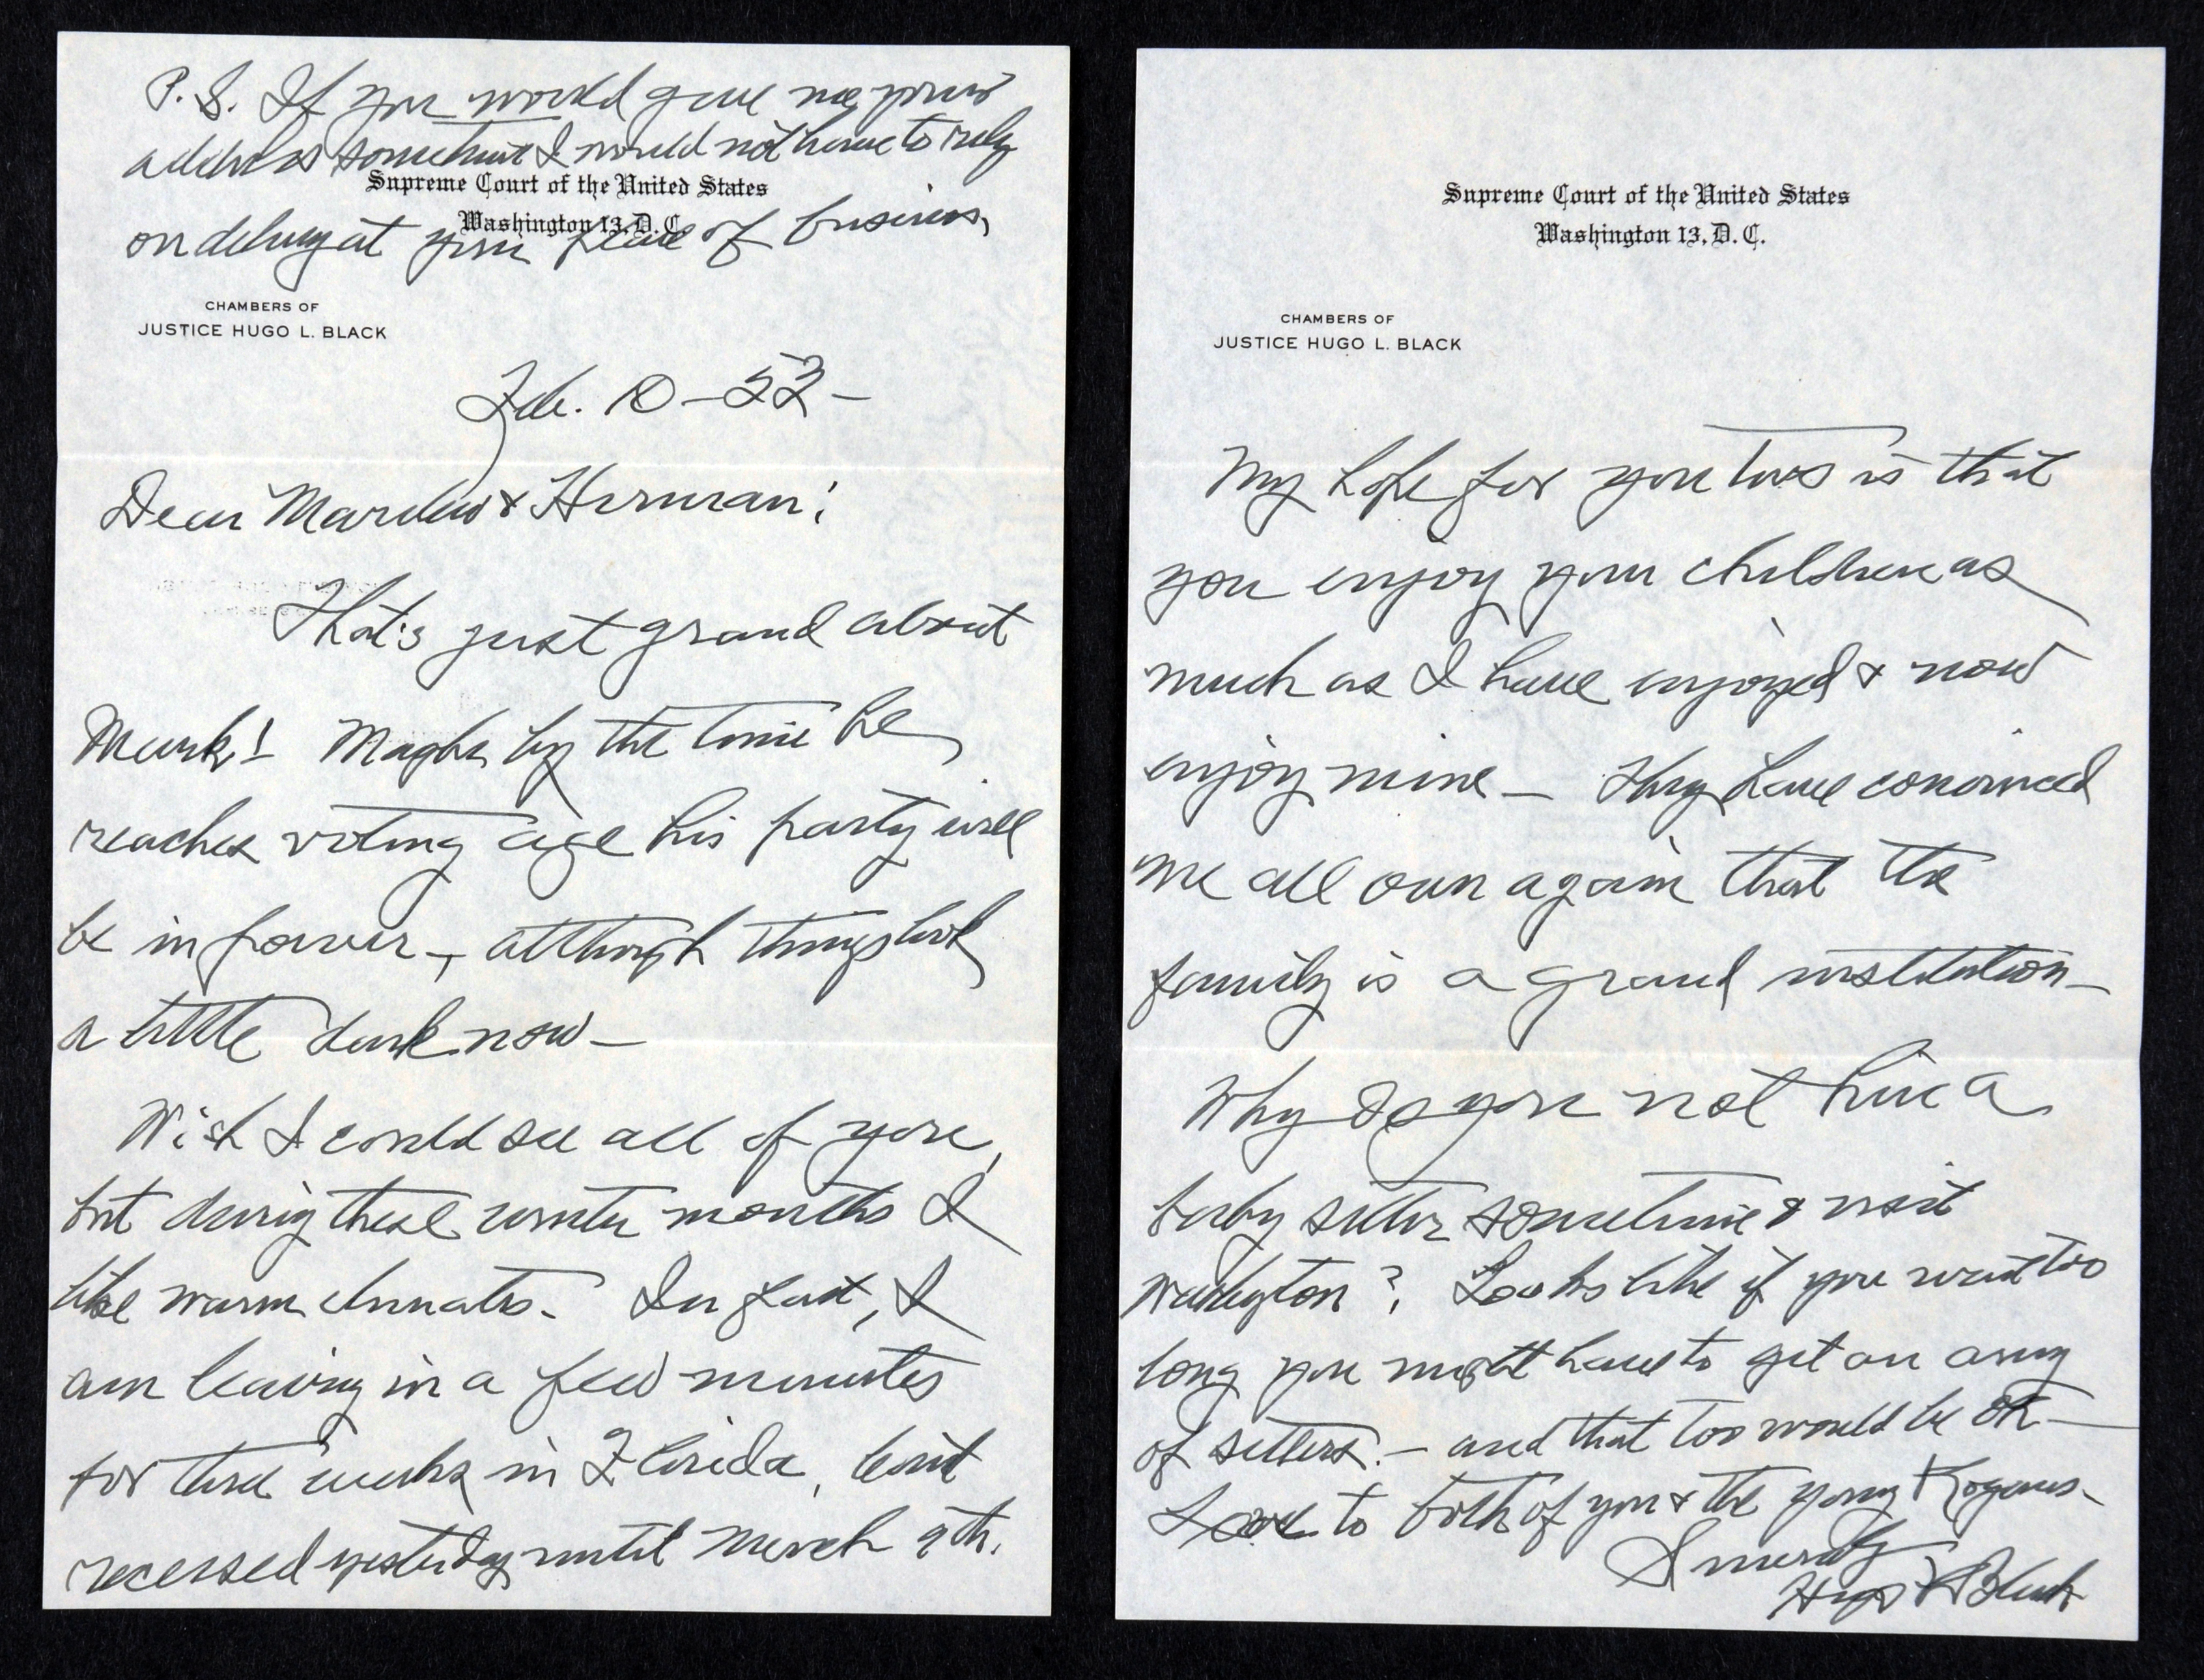 P.S. If you would give me your
address sometime I would not have to rely
Supreme Court of the United States
Washington 13, D.C.
on delivery at your place of business,
CHAMBERS OF
JUSTICE HUGO L. BLACK
Feb. 10-53-
Dear & Herman:
That's just grand about
Mark! Maybe by the time he
reaches voting age his party will
be in power -, although things look
a little dark now -
Wish I could see all of you,
but during these winter months I
like warm climates. In fact, I
am leaving in a few minutes
for three weeks in Florida,
recessed yesterday until March 9th.
Supreme Court of the United States
Washington 13, D.C.
CHAMBERS OF
JUSTICE HUGO L. BLACK
My hope for you two is that
you enjoy your children as
much as I have enjoyed & now
enjoy mine - They have convinced
me all over again that the
family is a grand institution -
Why do you not hire a
baby sitter sometime & visit
Washington? Looks like if you wait too
long you might have to get an army
of sitters. - and that too would be OK -
Love to both of you & the young
Sincerely
Hugo L Black